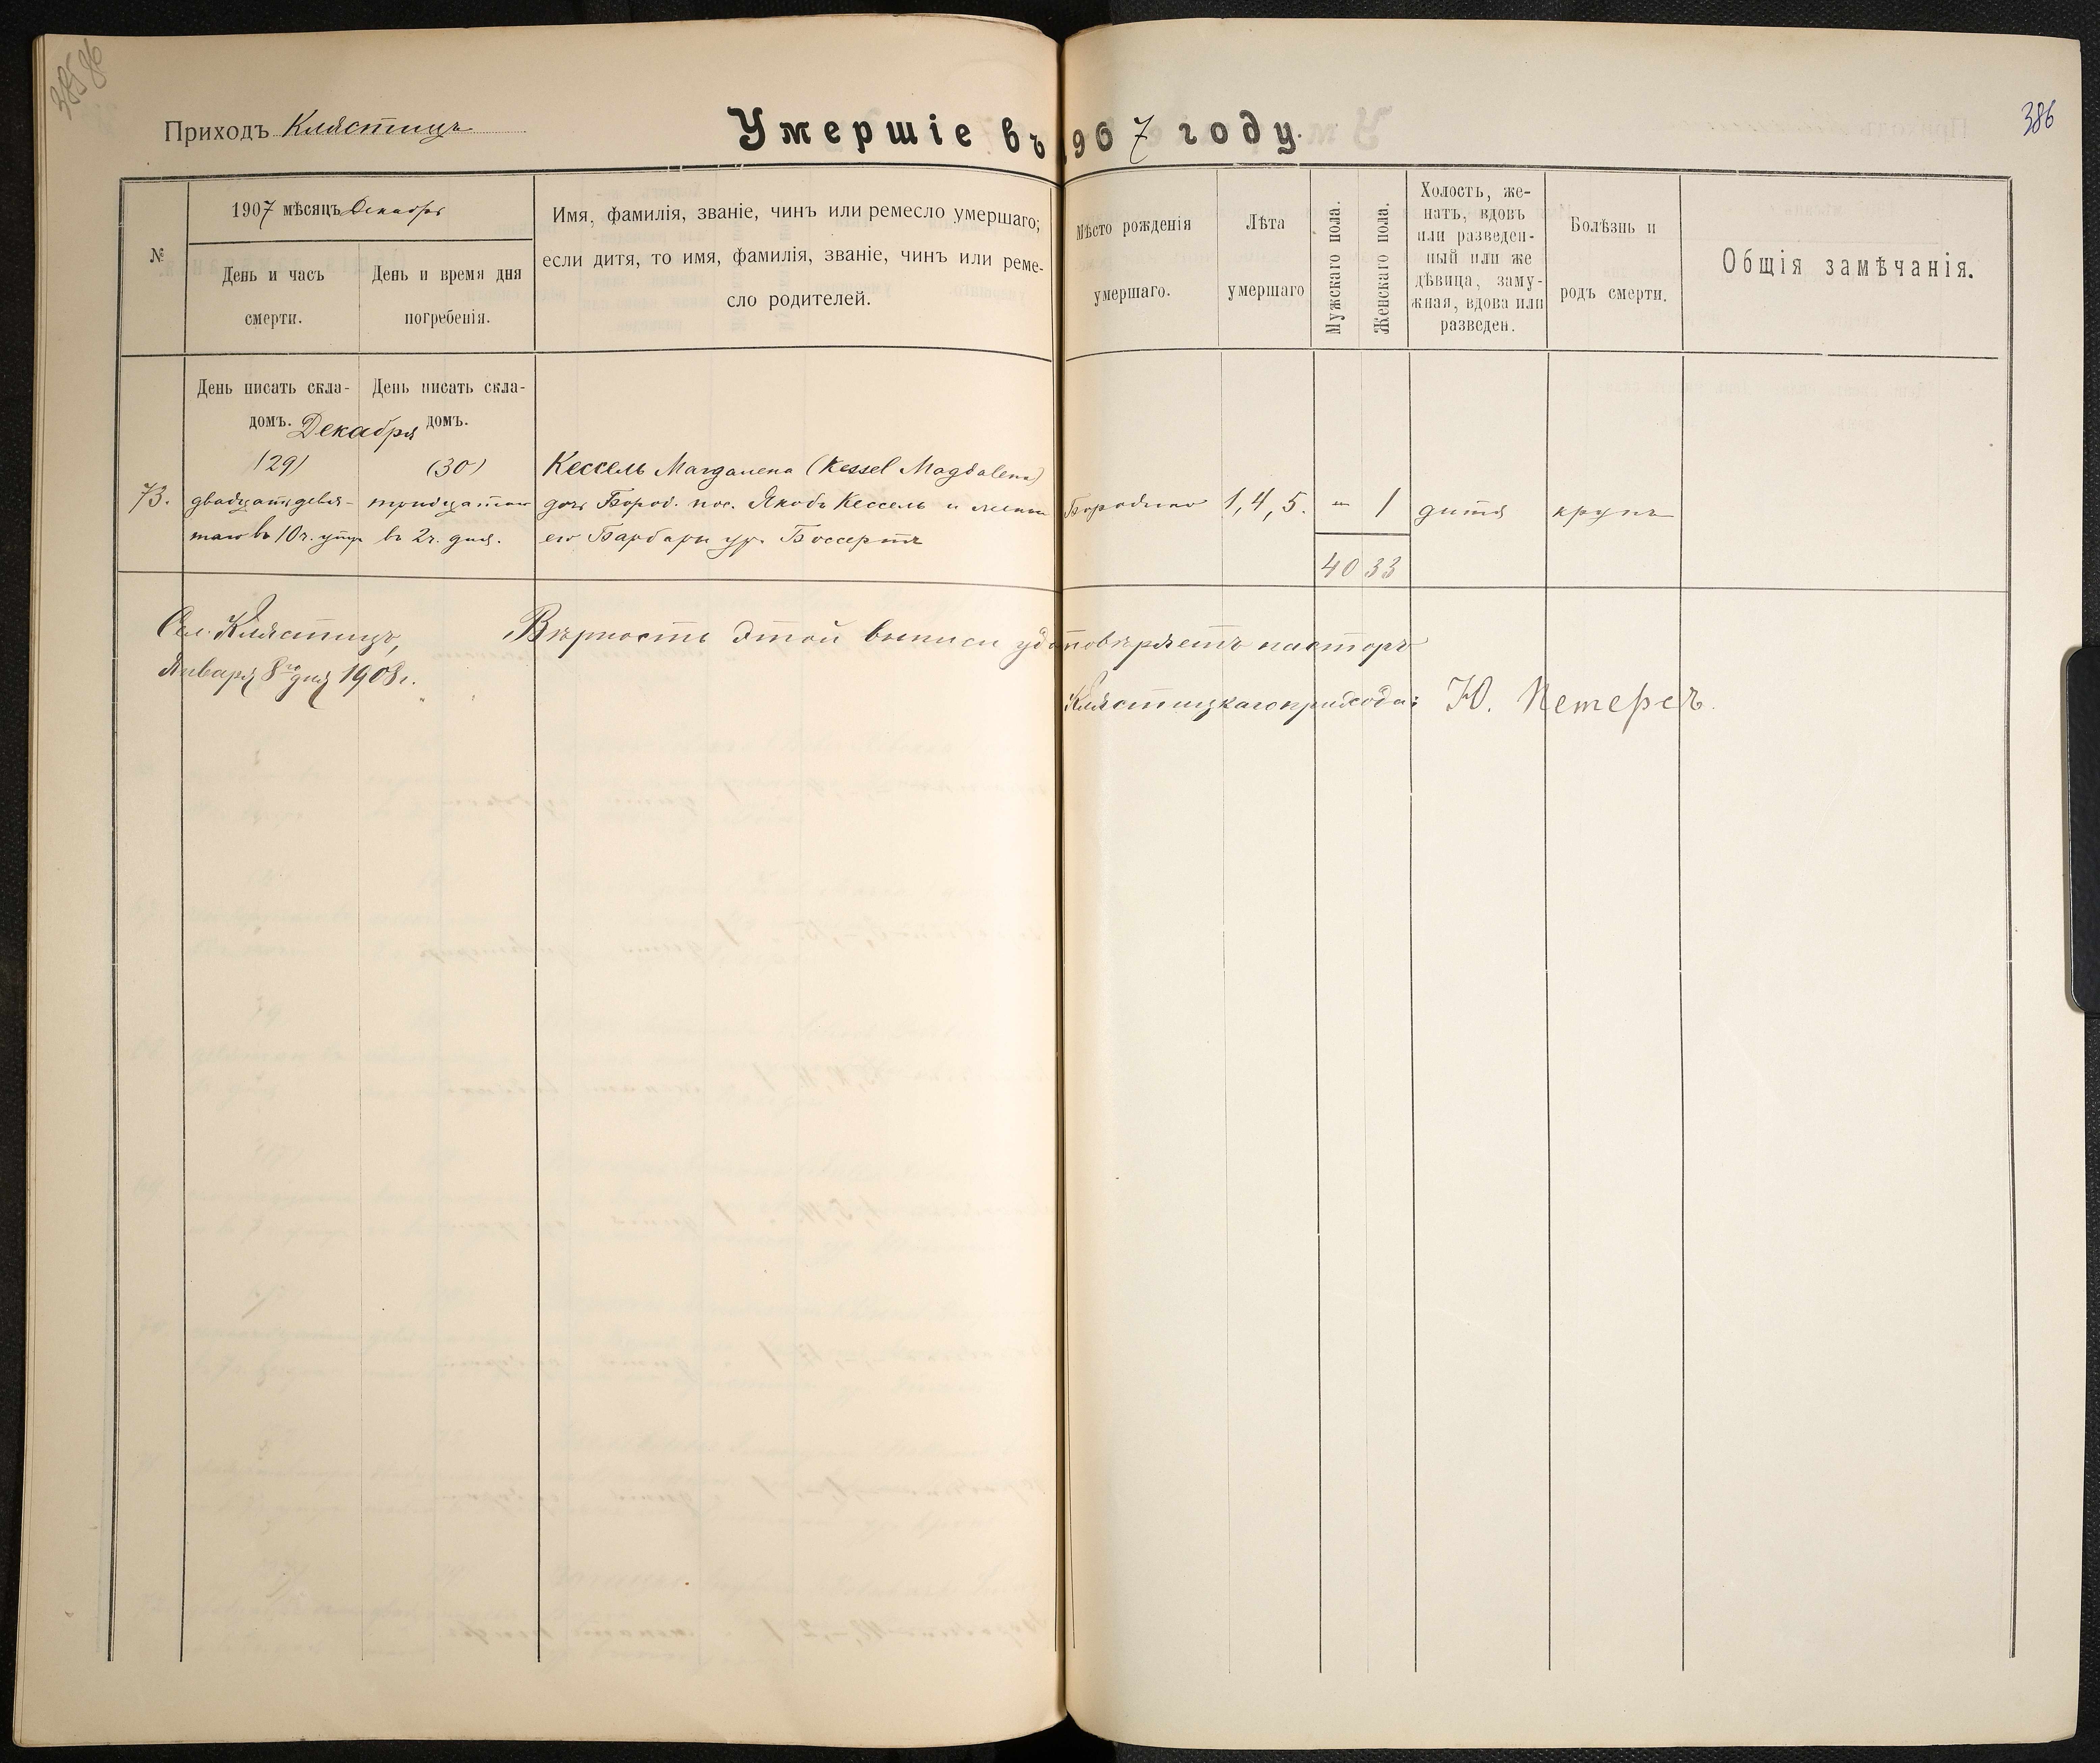 386
Приходъ Клястицъ
Умершіе въ 1907 году.
№
1907 мѣсяцъ Декабрь
День и часъ
смерти.
День и время дня
погребенія.
Имя, фамилія, званіе, чинъ или ремесло умершаго;
если дитя, то имя, фамилія, званіе, чинъ или реме-
сло родителей.
Мѣсто рожденія
умершаго.
Лѣта
умершаго
Мужскаго пола.
Женскаго пола.
Холостъ, же-
натъ, вдовъ
или разведен-
ный или же
дѣвица, заму-
жная, вдова или
разведен.
Болѣзнь и
родъ смерти.
Общія замѣчанія.
День писать скла-
домъ.
День писать скла-
домъ.
Декабря
73.
(29)
двадцать девя-
таго въ 10 ч. утр.
(30)
тридцатаго
въ 2 ч. дня.
Кессель Магдалена (Kessel Magdalena)
дочь Бород. пос. Якова Кессель и жены
его Барбары ур. Боссертъ
Бородино
1, 4, 5.
- 1
дитя
крупъ
40 33
Сел. Клястицъ,
Января 8го дня 1908 г.
Вѣрность этой выписи удостовѣряетъ пасторъ
Клястицкаго прихода: Ю. Петерсъ.